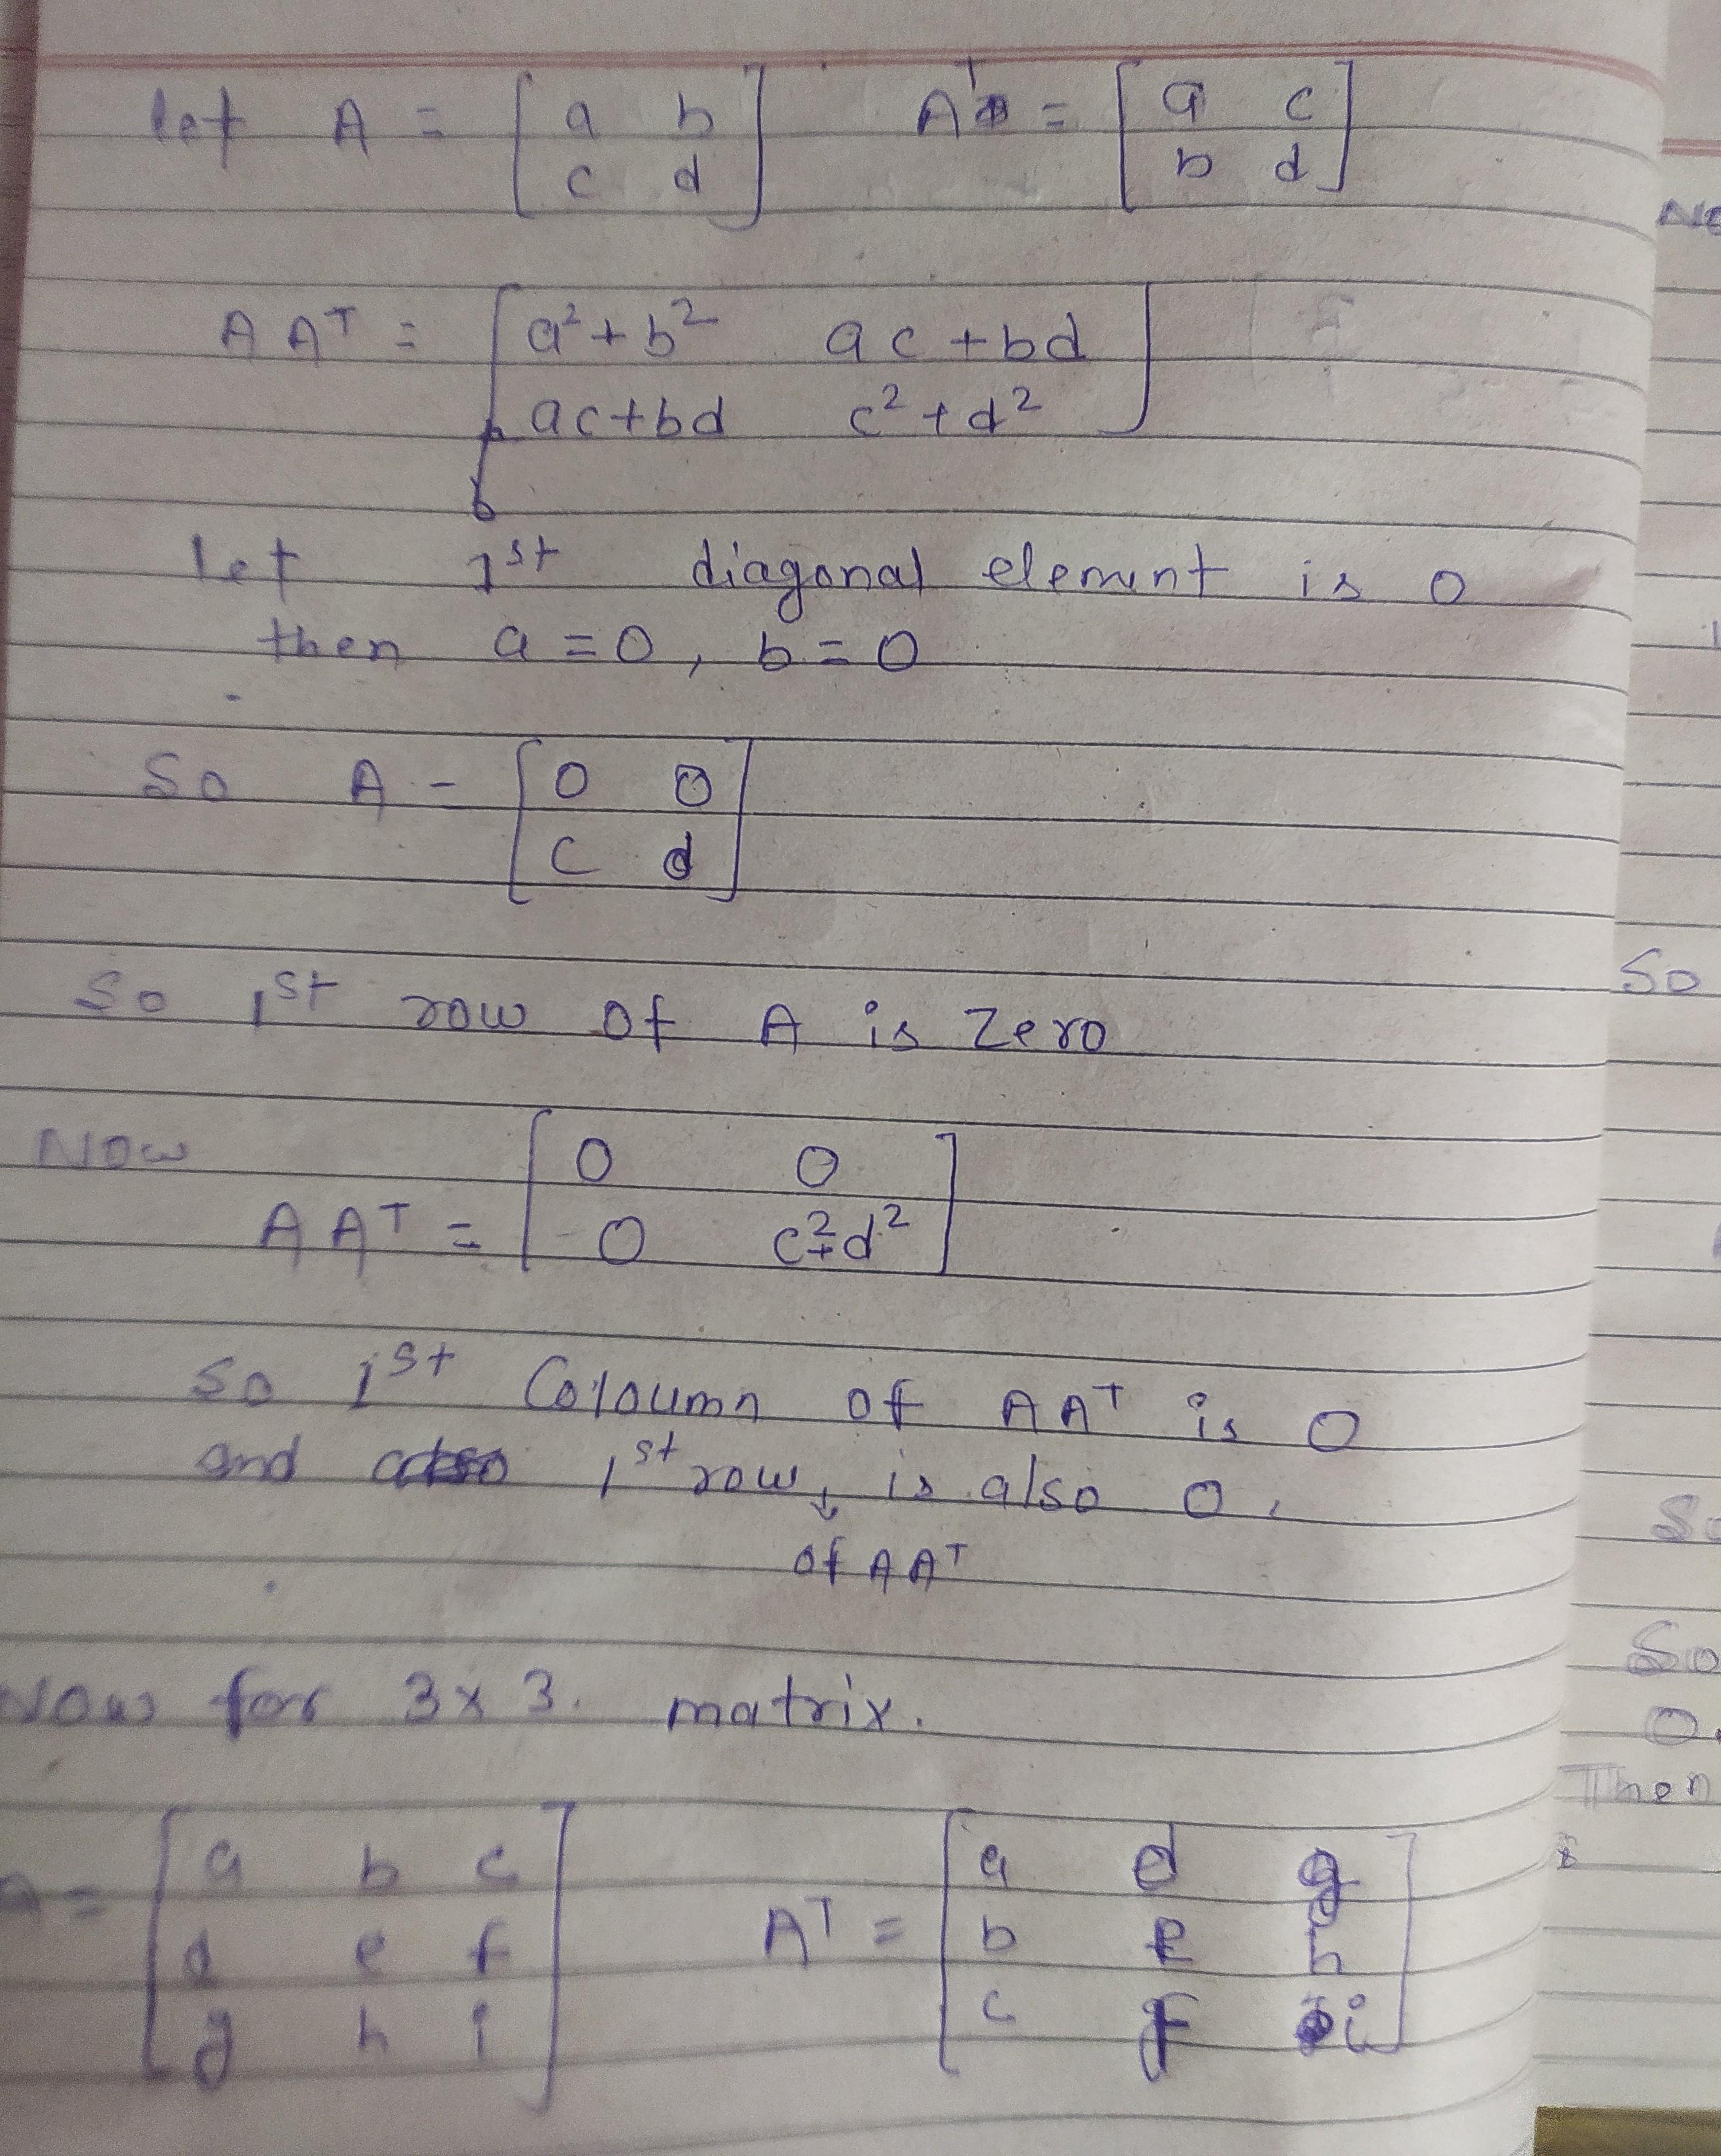 let A = [ a b      A^T = [ a c
c d ]      b d ]
A A^T = [ a² + b²   ac + bd
ac + bd   c² + d² ]
let 1st diagonal element is 0
then a = 0, b = 0
So A = [ 0 0
c d ]
So 1st row of A is Zero
Now
A A^T = [ 0   0
0   c² + d² ]
So 1st Coloumn of A A^T is 0
and 1st row, is also 0.
of A A^T
Now for 3 x 3. matrix.
a = [ a b c      A^T = [ a d g
d e f      b e h
g h i ]      c f i ]
So
So
0.
Then